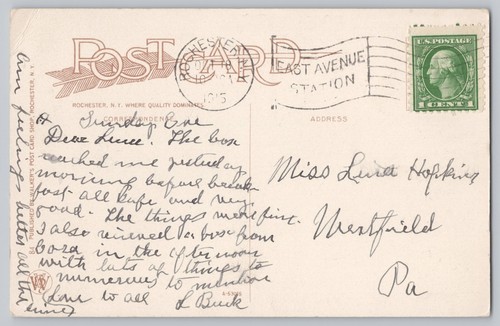 POST CARD
ROCHESTER, N.Y.
1915
EAST AVENUE
STATION
U.S. POSTAGE
1 CENT 1
ROCHESTER, N. Y. WHERE QUALITY DOMINATES
CORRESPONDENCE
ADDRESS
Sunday Eve
Dear Lena. The box
reached me yesterday
morning before break
fast all safe and very
good. The things were fine.
I also received a box from
Cora in the afternoon
with lots of things to
numerous to mention
Love to all L Buck
Am feelings better all the
time
Miss Lena Hopkins
Westfield
Pa
PUBLISHED BY WALKER'S POST CARD SHOP, ROCHESTER, N.Y.